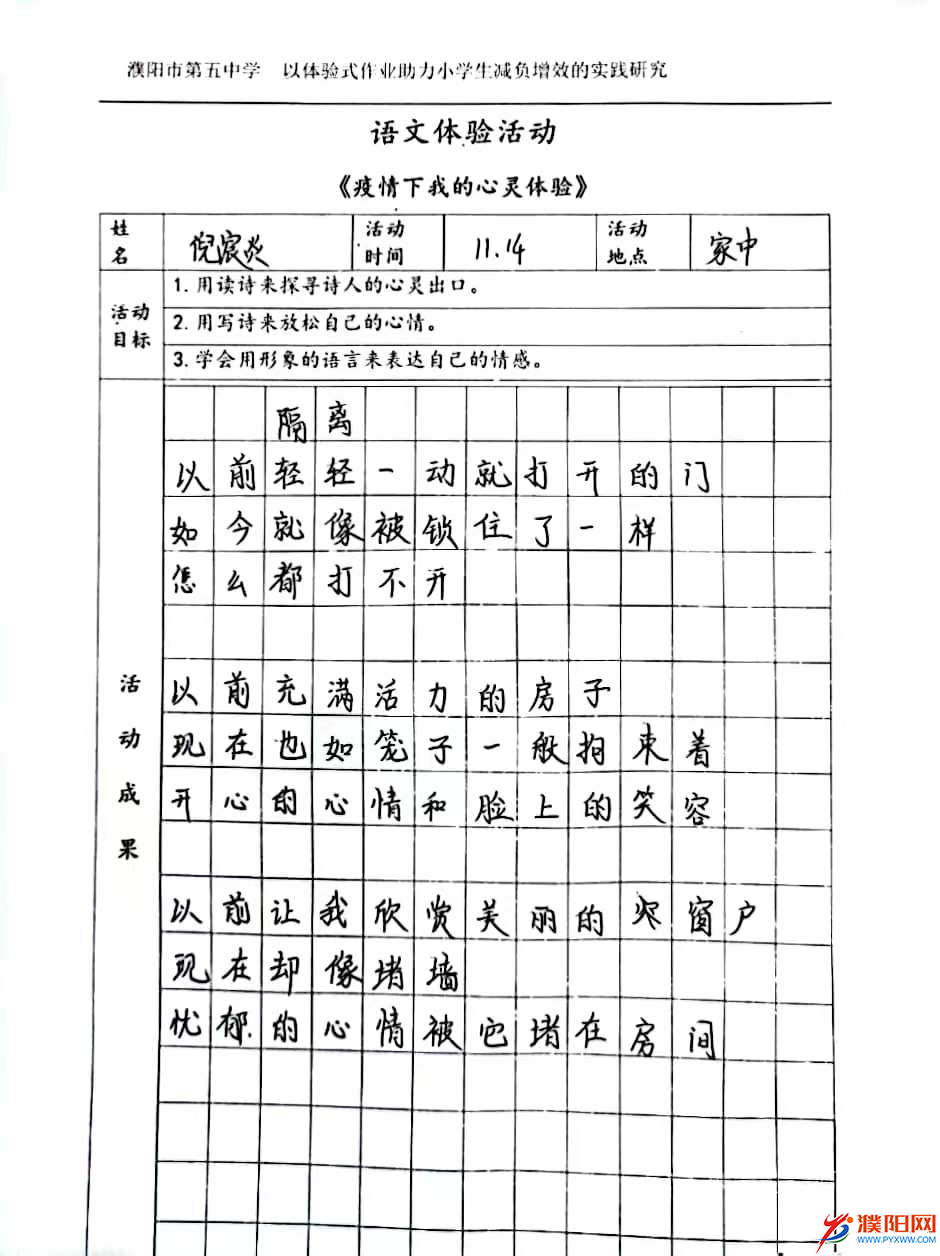 濮阳市第五中学 以体验式作业助力小学生减负增效的实践研究
语文体验活动
《疫情下我的心灵体验》
姓名 倪宸炎 活动时间 11.14 活动地点 家中
活动目标
1.用读诗来探寻诗人的心灵出口。
2.用写诗来放松自己的心情。
3.学会用形象的语言来表达自己的情感。
活动成果
隔离
以前轻轻一动就打开的门
如今就像被锁住了一样
怎么都打不开
以前充满活力的房子
现在也如笼子一般拘束着
开心的心情和脸上的笑容
以前让我欣赏美丽的窗户
现在却像堵墙
忧郁的心情被它堵在房间
濮阳网
www.pyxww.com